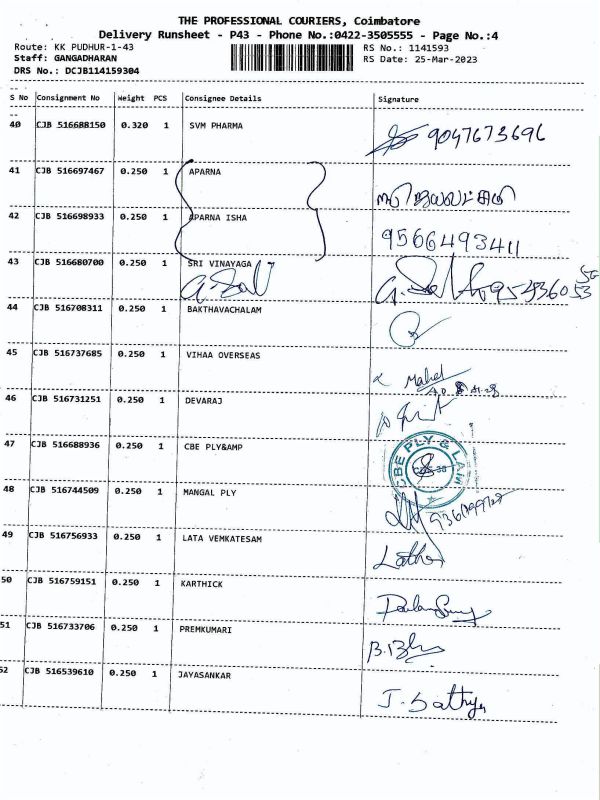 THE PROFESSIONAL COURIERS, Coimbatore
Delivery Runsheet - P43 - Phone No.:0422-3505555 - Page No.:4
Route: KK PUDHUR-1-43 RS No.: 1141593
Staff: GANGADHARAN RS Date: 25-Mar-2023
DRS No.: DCJB114159304
S No Consignment No Weight PCS Consignee Details Signature
40 CJB 516688150 0.320 1 SVM PHARMA 9047673696
41 CJB 516697467 0.250 1 APARNA
42 CJB 516698933 0.250 1 APARNA ISHA 9566493411
43 CJB 516680700 0.250 1 SRI VINAYAGA
44 CJB 516708311 0.250 1 BAKTHAVACHALAM
45 CJB 516737685 0.250 1 VIHAA OVERSEAS
46 CJB 516731251 0.250 1 DEVARAJ
47 CJB 516688936 0.250 1 CBE PLY&AMP CBE PLY & LAM
48 CJB 516744509 0.250 1 MANGAL PLY
49 CJB 516756933 0.250 1 LATA VEMKATESAM
50 CJB 516759151 0.250 1 KARTHICK
51 CJB 516733706 0.250 1 PREMKUMARI
52 CJB 516539610 0.250 1 JAYASANKAR J. Sathya